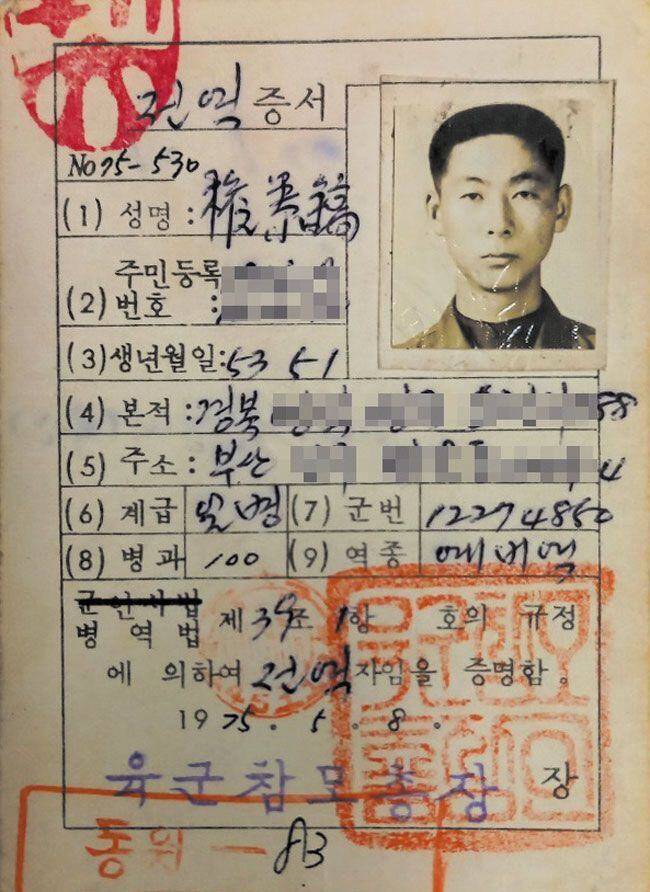 전역증서
No 75-530
(1) 성명 : 權景鎬
주민등록
(2) 번호 :
(3) 생년월일: 53 5 1
(4) 본적 : 경북 88
(5) 주소 : 부산 4
(6) 계급 일병 (7) 군번 12274850
(8) 병과 100 (9) 역종 예비역
군인사법
병역법 제 39조 1항 호의 규정
에 의하여 전역자임을 증명함.
1975. 5. 8.
육군참모총장 장
동원 - AB